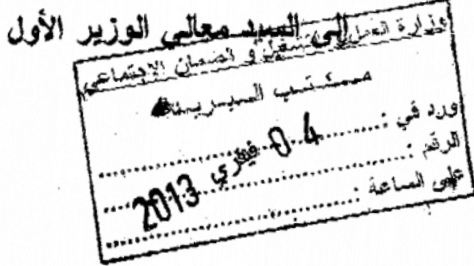 إلى السيد معالي الوزير الأول
وزارة العمل والتشغيل و الضمان الاجتماعي
مكتب البريد
ورد في : 04 فيفري 2013
الرقم :
على الساعة :